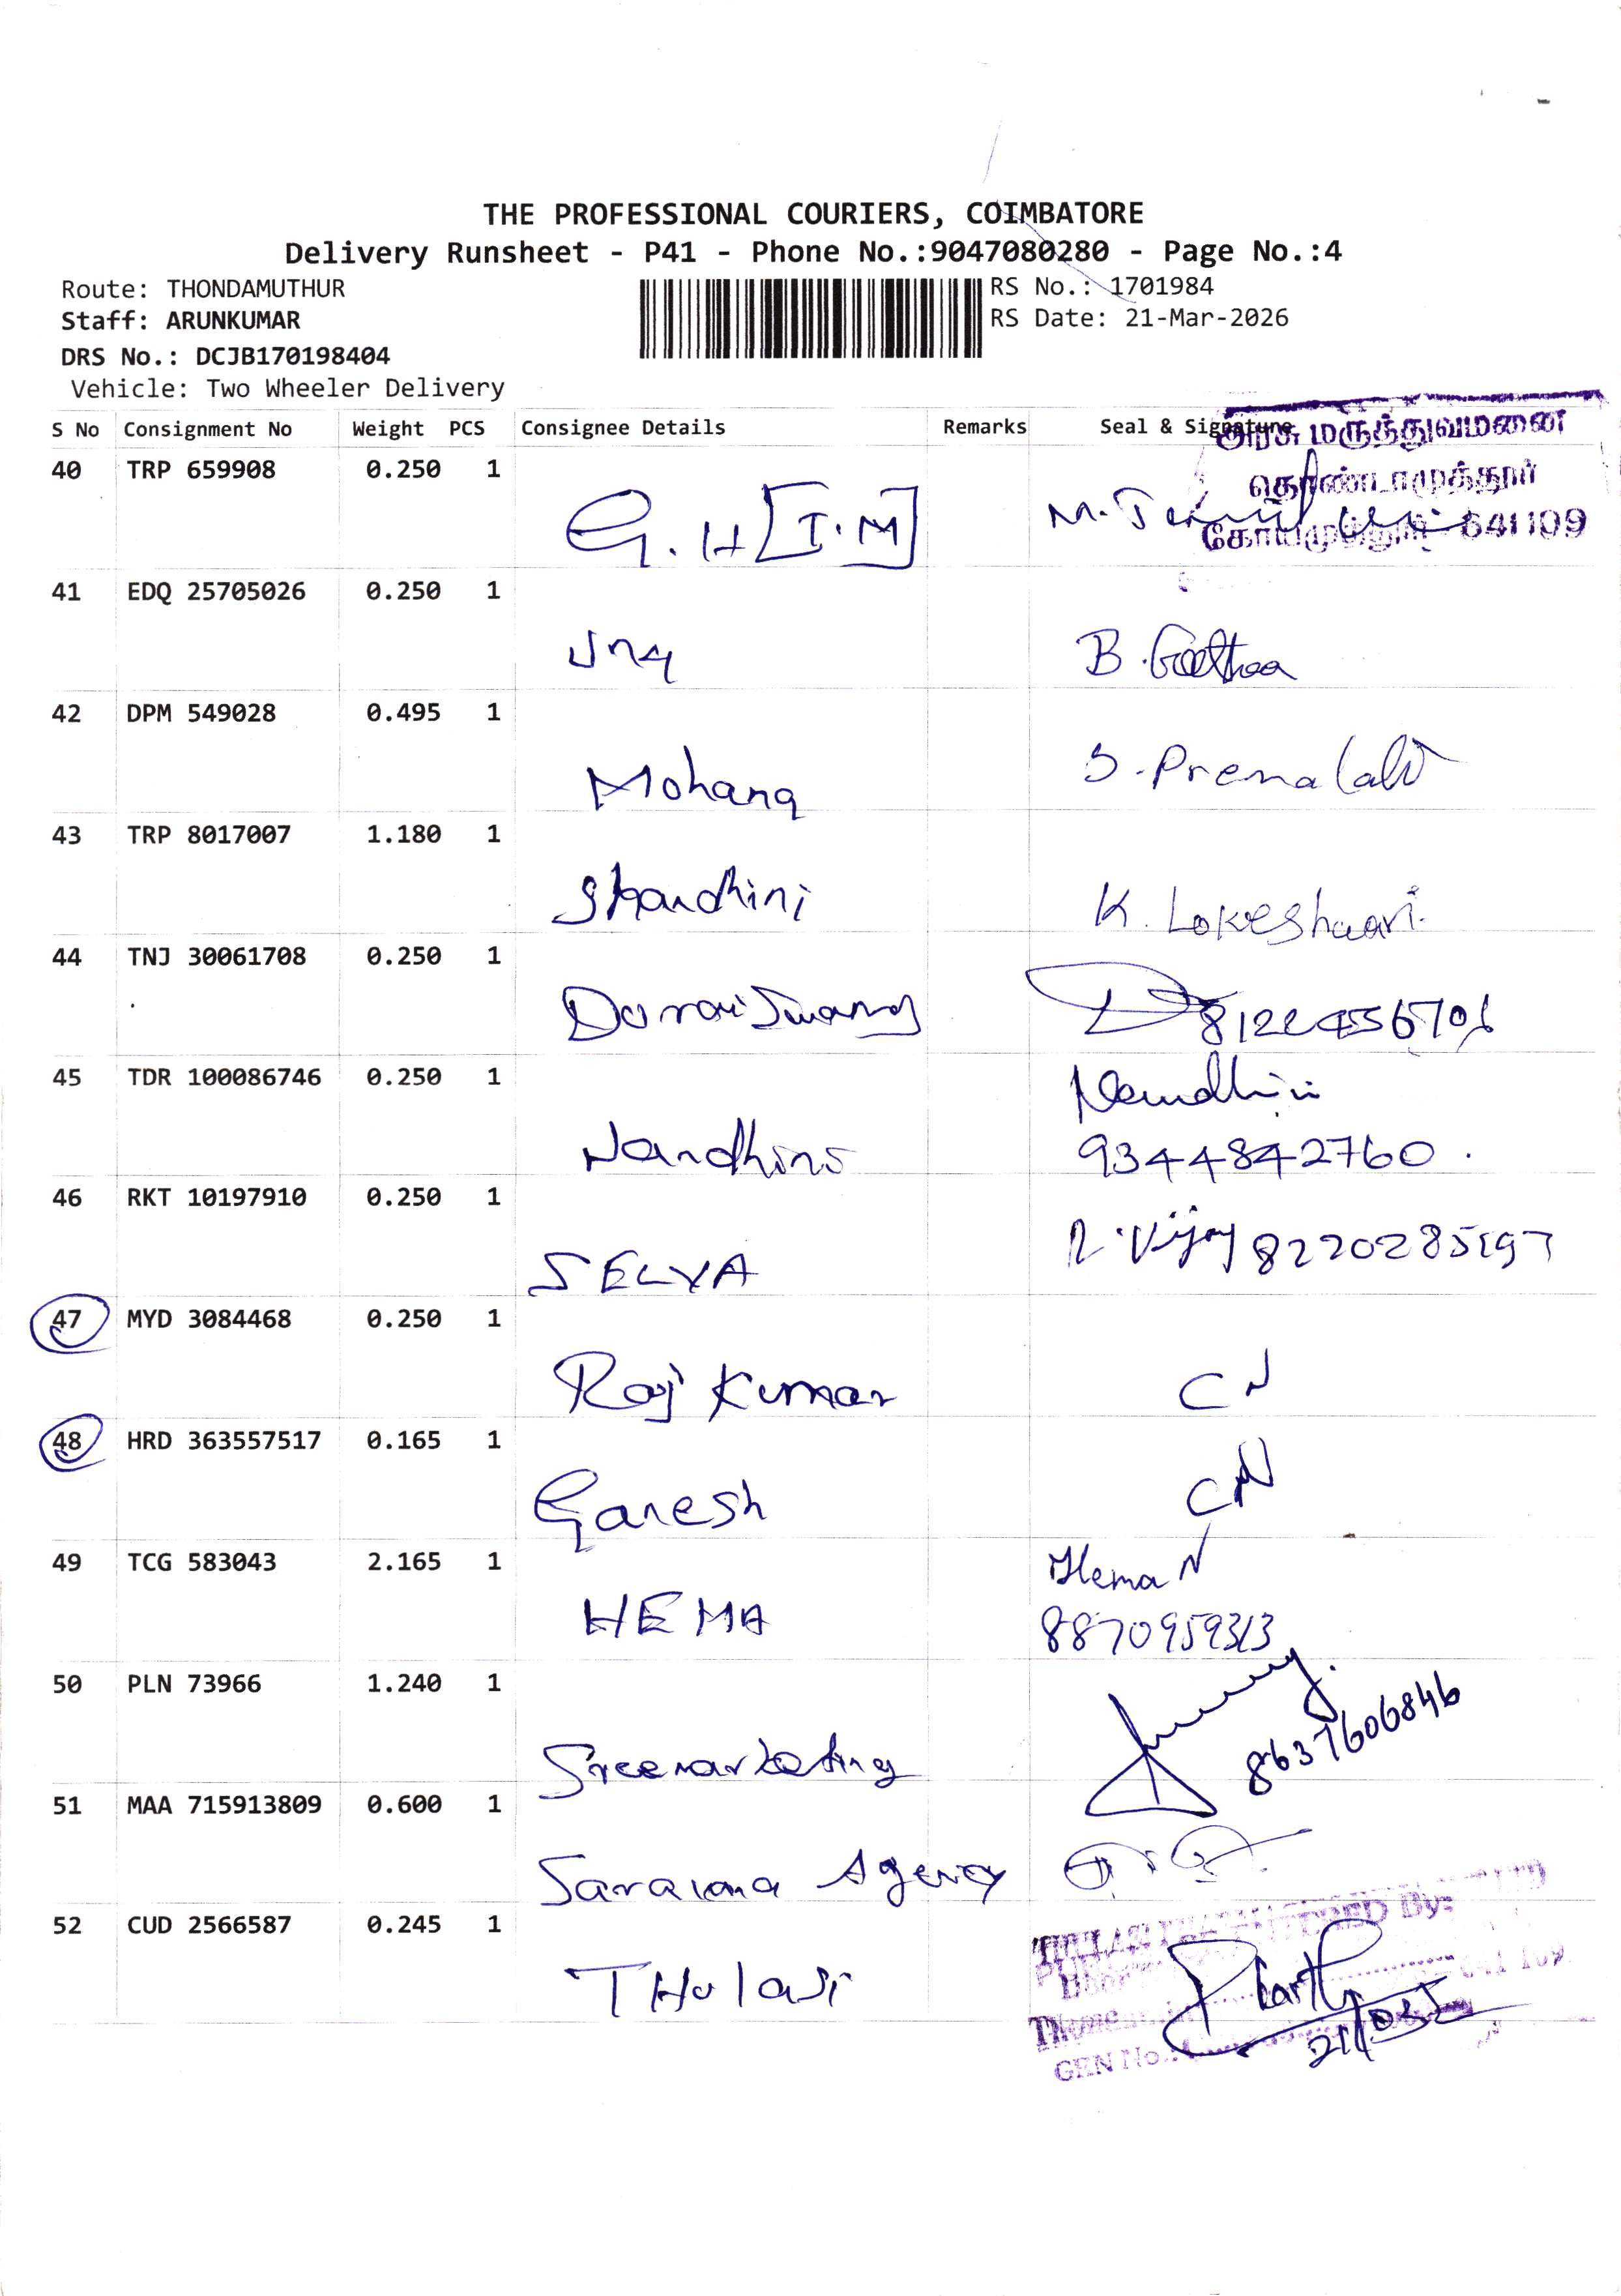 THE PROFESSIONAL COURIERS, COIMBATORE
Delivery Runsheet - P41 - Phone No.:9047080280 - Page No.:4
Route: THONDAMUTHUR
RS No.: 1701984
Staff: ARUNKUMAR
RS Date: 21-Mar-2026
DRS No.: DCJB170198404
Vehicle: Two Wheeler Delivery
S No Consignment No Weight PCS Consignee Details Remarks Seal & Signature
அரசு மருத்துவமனை
தொண்டாமுத்தூர்
கோயமுத்தூர் - 641109
40 TRP 659908 0.250 1 G.H [T.M]
41 EDQ 25705026 0.250 1 B. Geethaa
42 DPM 549028 0.495 1 Mohana S. Premalat
43 TRP 8017007 1.180 1 Skandhini K. Lokeshwari.
44 TNJ 30061708 0.250 1 Doraiswamy
45 TDR 100086746 0.250 1 Nandhini Nandhini
9344842760.
46 RKT 10197910 0.250 1 SELVA R. Vijay 8220285197
47 MYD 3084468 0.250 1 Raj Kumar CN
48 HRD 363557517 0.165 1 Ganesh CN
49 TCG 583043 2.165 1 HEMA Hema N
8870959313
50 PLN 73966 1.240 1 Sreemarketing 8637606846
51 MAA 715913809 0.600 1 Saravana Agency
52 CUD 2566587 0.245 1 THulasi
By:
GEN No.: